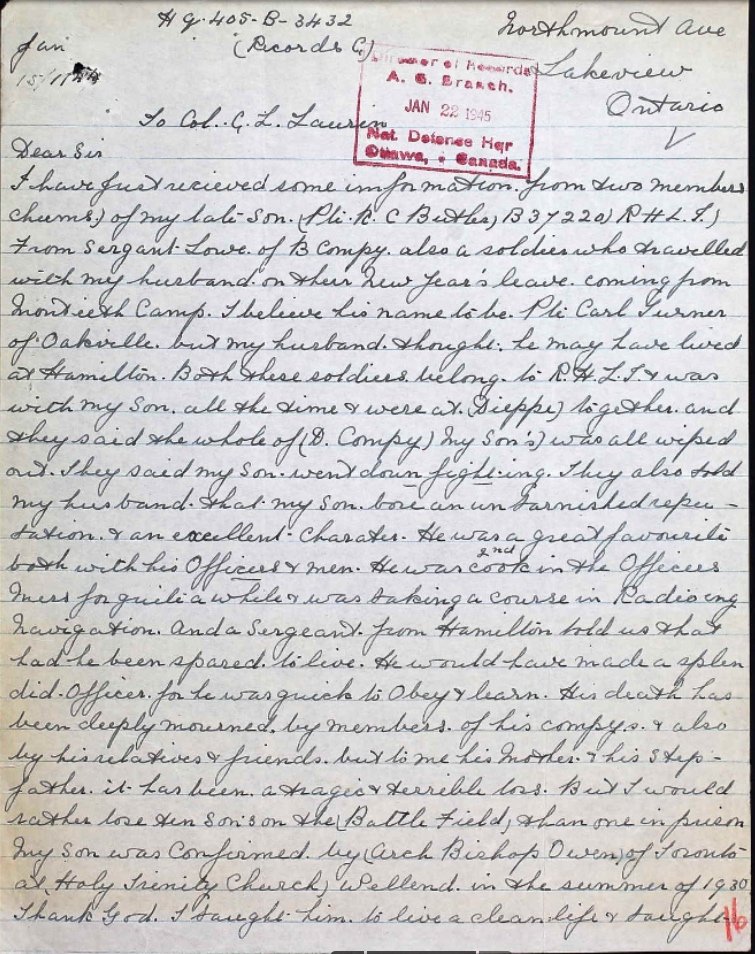 HQ-405-B-3432
Northmount Ave
Jan
(Records G.)
Lakeview
15/1
Ontario
Director of Records
A. G. Branch.
JAN 22 1945
Nat. Defense Hqr
Ottawa, - Canada.
To Col. C. L. Laurin
Dear Sir
I have just recieved some information. from two members
chums) of my late Son. (Pte. R. C Butler) B37220) R H L I.)
From Sergant Lowe. of B Compy. also a soldier who travelled
with my husband. on their New Year's leave. coming from
Monteith Camp. I believe his name to be. Pte Carl Turner
of Oakville. but my husband. thought. he may have lived
at Hamilton. Both these soldiers. belong. to R.H.L.I. & was
with my Son. all the time & were at. (Dieppe) together. and
they said the whole of (D. Compy) My Son's) was all wiped
out. They said my Son. went down fighting. They also told
my husband. that my Son. bore an un tarnished repu-
tation. & an excellent charater. He was a great favourite
both with his Officers & men. He was 2nd cook in the Officers
Mess for quite a while & was taking a course in Radioing
Navigation. And a Sergeant. from Hamilton told us that
had he been spared. to live. He would have made a splen
did. Officer. for he was quick to Obey & learn. His death has
been deeply mourned. by members. of his compys. & also
by his relatives & friends. but to me his Mother. & his Step-
father. it has been. a tragic & terrible loss. But I would
rather lose ten Son's on the (Battle Field) than one in prison
My Son was Confirmed. by (Arch Bishop Owen) of Toronto
at (Holy Trinity Church) Wellend. in the summer of 1930
Thank God. I taught him. to live a clean life & taught
16